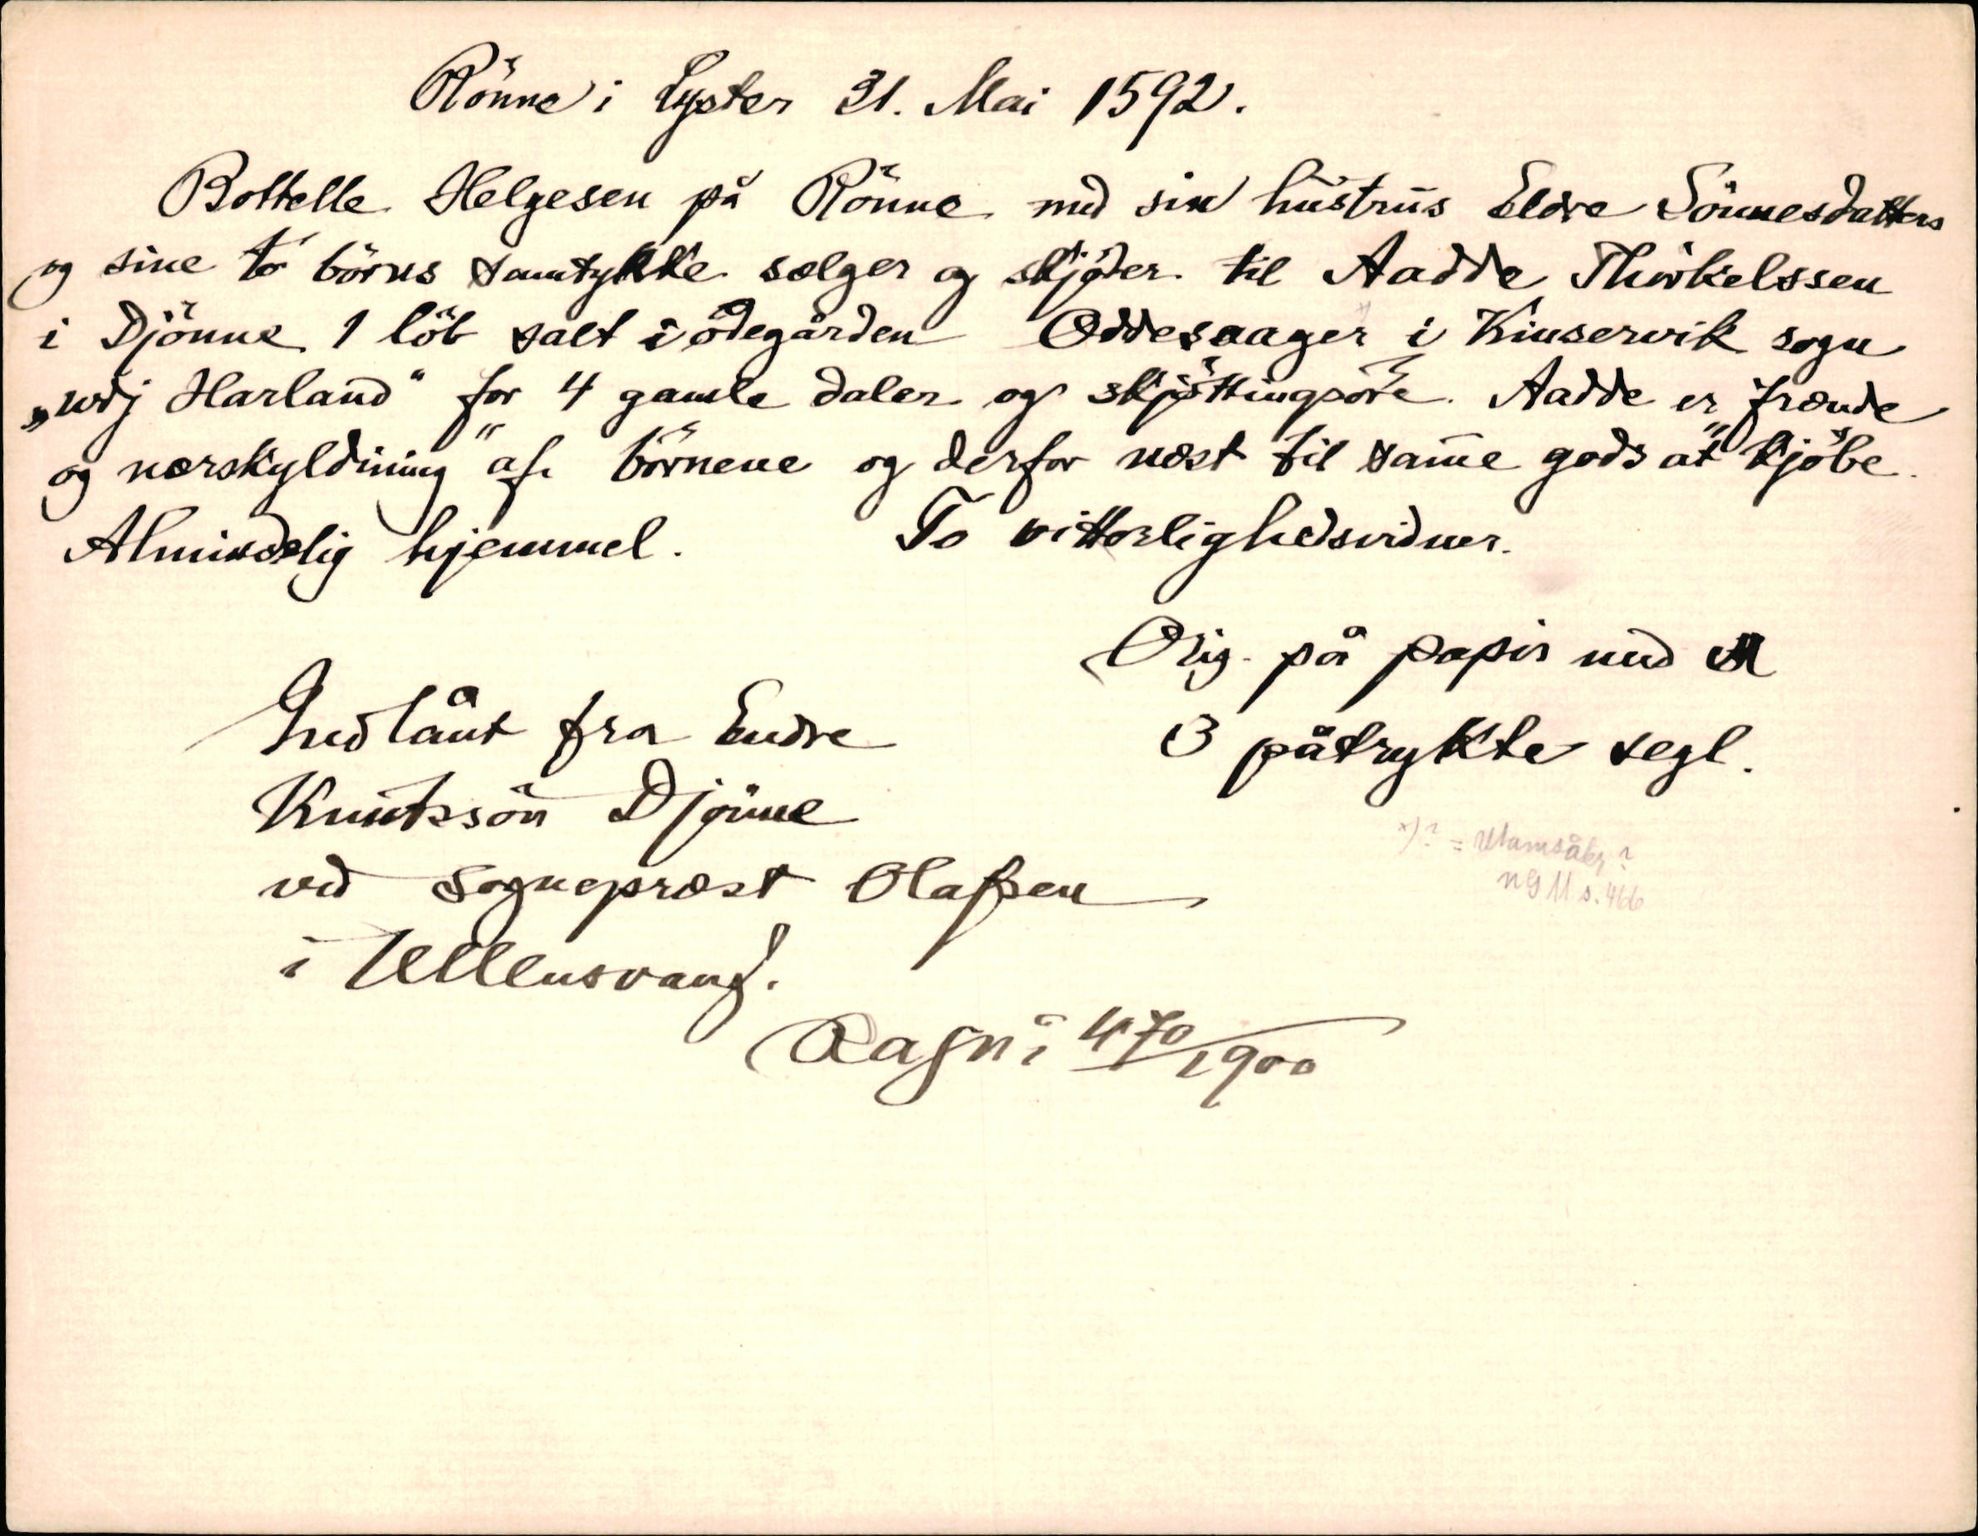 Rönne i Lyster 31. Mai 1592.
Bottelle Helgesen på Rönne med sin hustrus Eldre Sönnesdatters
og sine to börns samtykke sælger og skjöder til Aadde Thorkelssen
i Djönne 1 löb salt i ödegården Oddesaager x) i Kinservik sogn
„wdj Harland" for 4 gamle daler og skjöttingsöre. Aadde er „frænde
og nærskyldning" af börnene og derfor næst til samme gods at kjöbe.
Almindelig hjemmel. To vitterlighedsvidner.
Orig. på papir med
3 påtrykte segl.
Indlånt fra Endre
Knutssön Djönne
ved sogneprest Olafsen
i Ullensvang.
Ragni 470/1900
x) ? = Utamsåkr ?
NG 11 s. 466